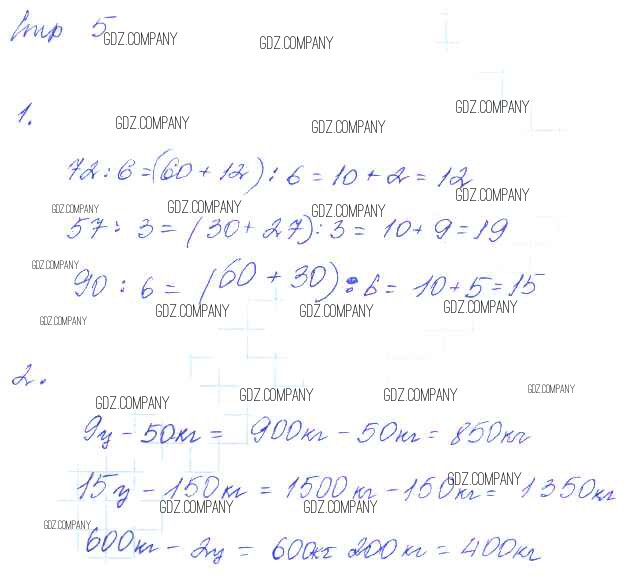 Стр 5
GDZ.COMPANY GDZ.COMPANY
1.
GDZ.COMPANY
GDZ.COMPANY GDZ.COMPANY
72:6=(60+12):6=10+2=12
GDZ.COMPANY
GDZ.COMPANY GDZ.COMPANY GDZ.COMPANY
57:3=(30+27):3=10+9=19
GDZ.COMPANY
90:6=(60+30):6=10+5=15
GDZ.COMPANY GDZ.COMPANY GDZ.COMPANY GDZ.COMPANY
2.
GDZ.COMPANY GDZ.COMPANY GDZ.COMPANY GDZ.COMPANY
9ц-50кг=900кг-50кг=850кг
GDZ.COMPANY
15ц-150кг=1500кг-150кг=1350кг
GDZ.COMPANY GDZ.COMPANY
GDZ.COMPANY
600кг-2ц=600кг-200кг=400кг